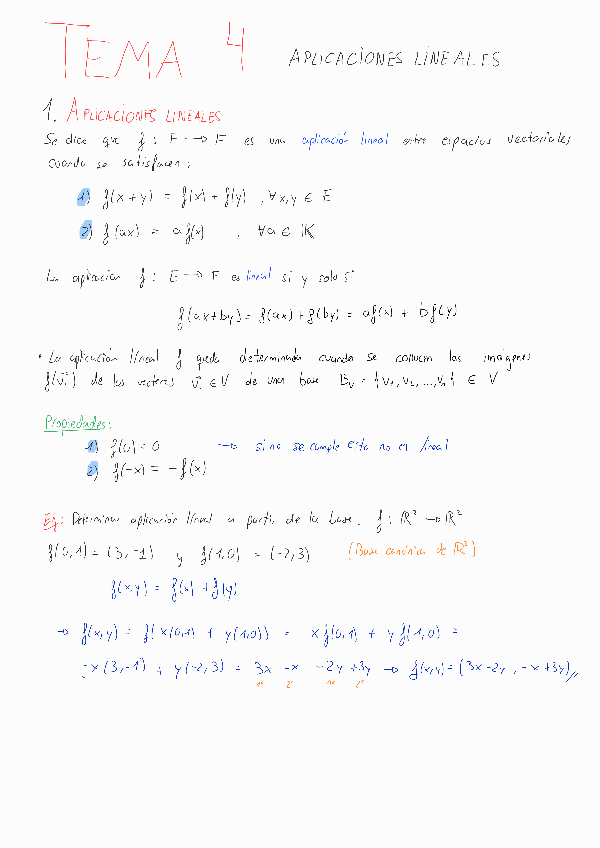 TEMA 4 APLICACIONES LINEALES
1. APLICACIONES LINEALES
Se dice que f : E → F es una aplicación lineal entre espacios vectoriales
cuando se satisfacen:
1) f(x+y) = f(x) + f(y) , ∀x,y ∈ E
2) f(ax) = af(x) , ∀a ∈ K
La aplicación f : E → F es lineal si y solo si
f(ax+by) = f(ax) + f(by) = af(x) + bf(y)
• La aplicación lineal f queda determinada cuando se conocen las imágenes
f(vi) de los vectores vi ∈ V de una base Bv = {v1, v2, ..., vn} ∈ V
Propiedades:
1) f(0) = 0 → si no se cumple esto no es lineal
2) f(-x) = -f(x)
Eg: Determinar aplicación lineal a partir de la base. f: ℝ² → ℝ²
f(0,1) = (3,-1) y f(1,0) = (-2,3) (Base canónica de ℝ²)
f(x,y) = f(x) + f(y)
→ f(x,y) = f(x(0,1) + y(1,0)) = xf(0,1) + yf(1,0) =
= x(3,-1) + y(-2,3) = 3x -x -2y +3y → f(x,y) = (3x-2y, -x+3y)//
1º 2º 1º 2º